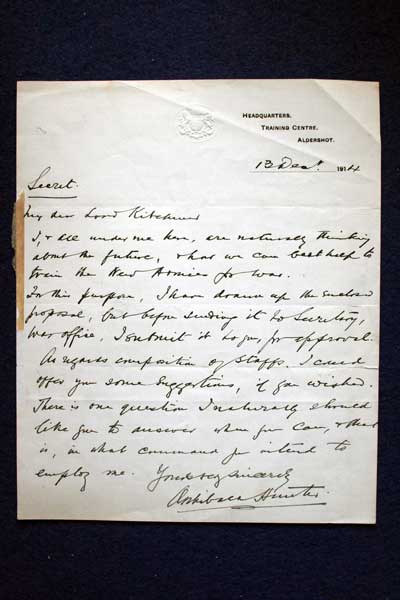 HEADQUARTERS,
TRAINING CENTRE,
ALDERSHOT.
13 Decr. 1914
Secret.
My dear Lord Kitchener
I, & all under me here, are naturally thinking
about the future, & how we can best help to
train the New Armies for war.
For this purpose, I have drawn up the enclosed
proposal, but before sending it to Secretary,
War Office, I submit it to you, for approval.
As regards composition of Staffs. I could
offer you some suggestions, if you wished.
There is one question I naturally should
like you to answer when you can, & that
is, in what command you intend to
employ me. Yours very sincerely
Archibald Hunter.